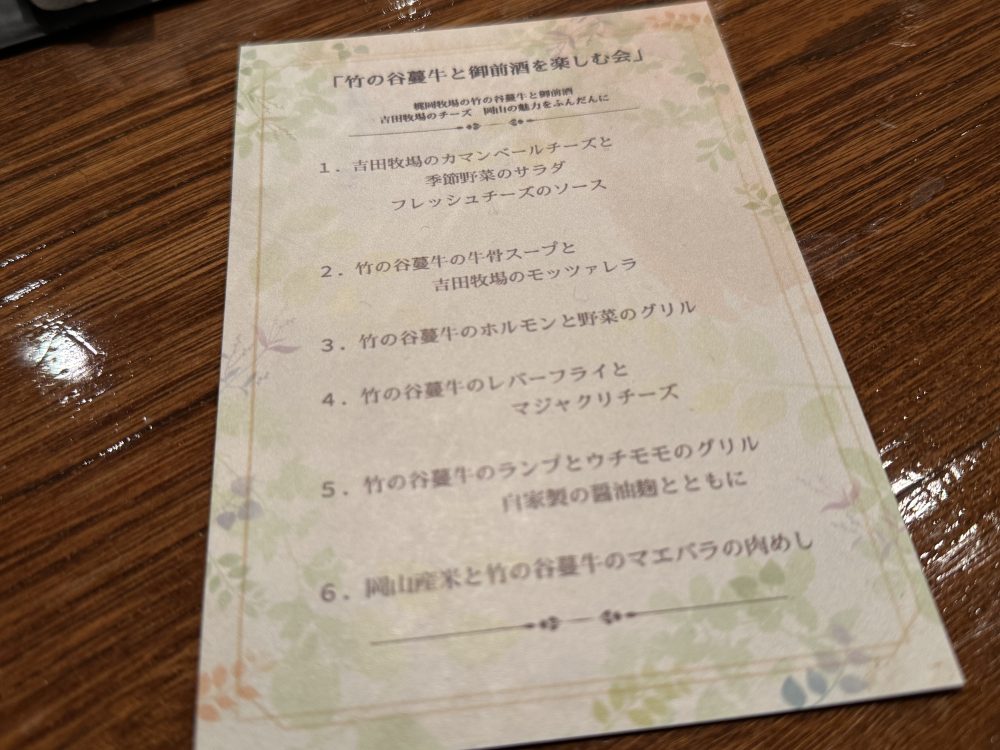 「竹の谷蔓牛と御前酒を楽しむ会」
桃岡牧場の竹の谷蔓牛と御前酒
吉田牧場のチーズ　岡山の魅力をふんだんに
1．吉田牧場のカマンベールチーズと
季節野菜のサラダ
フレッシュチーズのソース
2．竹の谷蔓牛の牛骨スープと
吉田牧場のモッツァレラ
3．竹の谷蔓牛のホルモンと野菜のグリル
4．竹の谷蔓牛のレバーフライと
マジャクリチーズ
5．竹の谷蔓牛のランプとウチモモのグリル
自家製の醤油麹とともに
6．岡山産米と竹の谷蔓牛のマエバラの肉めし